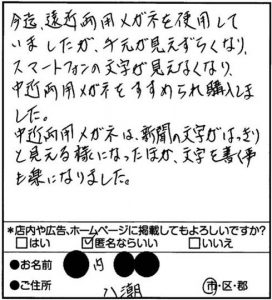 今迄、遠近両用メガネを使用して
いましたが、手元が見えずらくなり、
スマートフォンの文字が見えなくなり、
中近両用メガネをすすめられ購入しま
した。
中近両用メガネは、新聞の文字がはっきり
と見える様になったほか、文字を書く事
も楽になりました。
*店内や広告、ホームページに掲載してもよろしいですか?
□はい ☑匿名ならいい □いいえ
●お名前 内
●ご住所 八潮 市・区・郡